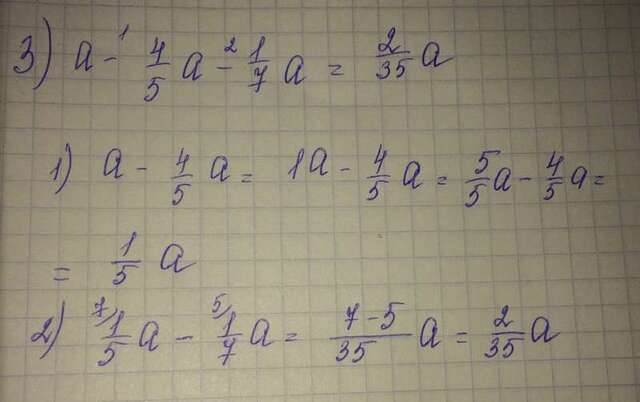 3) a -¹ 4/5 a -² 1/7 a = 2/35 a
1) a - 4/5 a = 1a - 4/5 a = 5/5 a - 4/5 a =
= 1/5 a
2) ⁷⁾1/5 a - ⁵⁾1/7 a = 7-5/35 a = 2/35 a